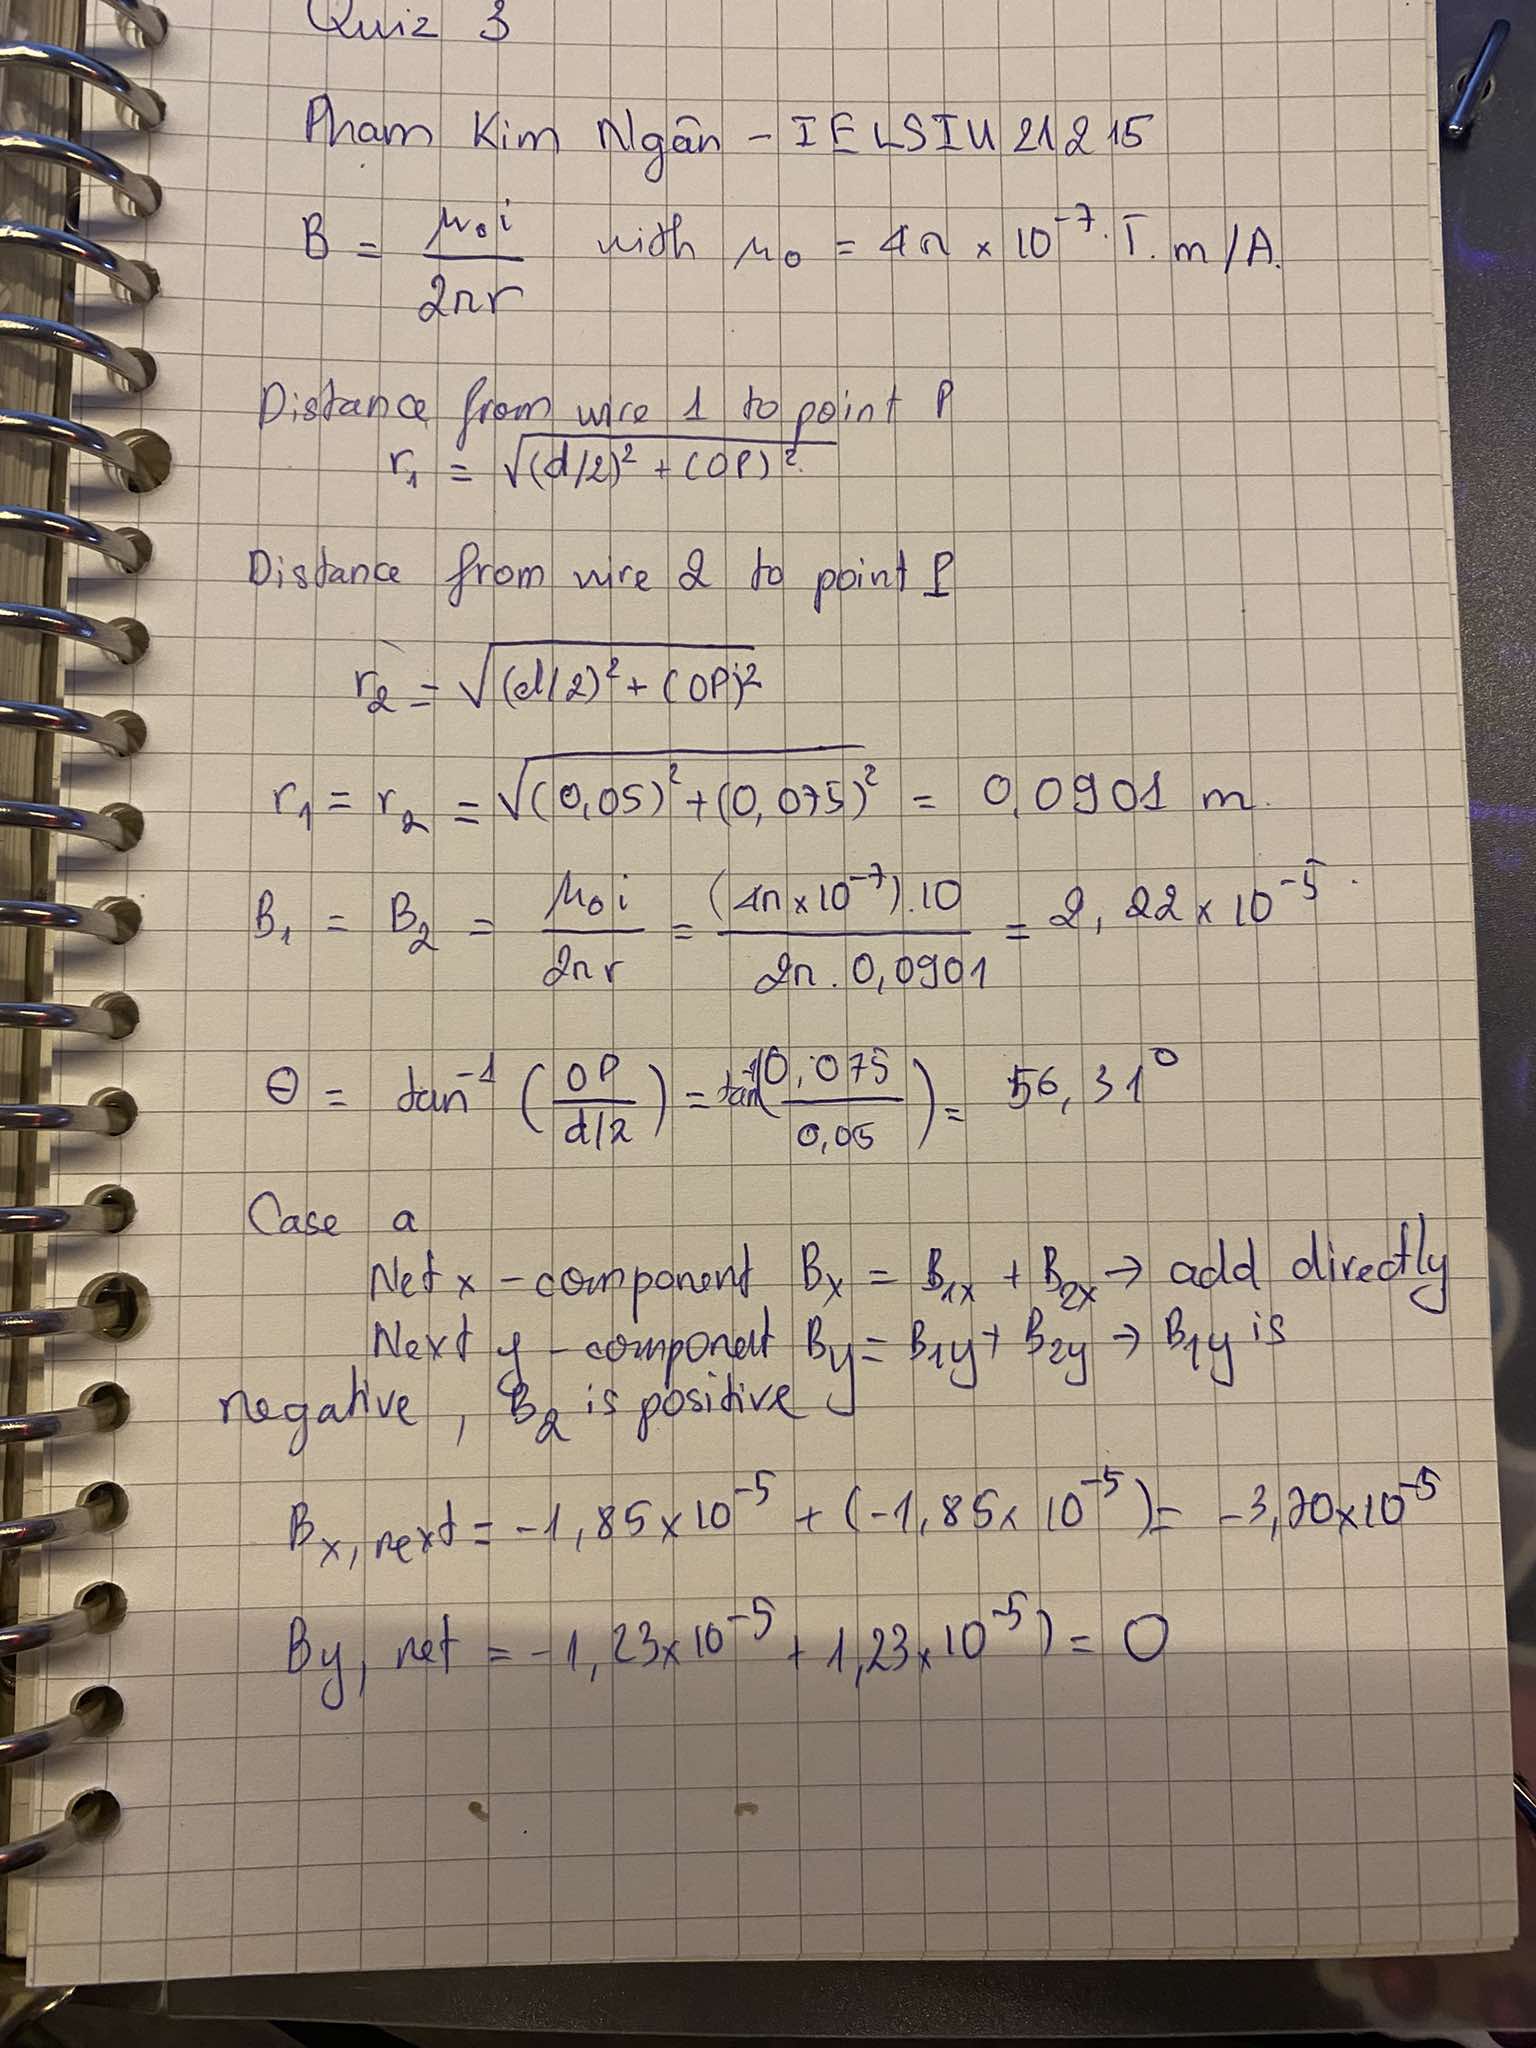 Quiz 3
Pham Kim Ngân - IELSIU21215
B = μ₀i / 2πr with μ₀ = 4π × 10⁻⁷ T.m/A.
Distance from wire 1 to point P
r₁ = √((d/2)² + (OP)²)
Distance from wire 2 to point P
r₂ = √((d/2)² + (OP)²)
r₁ = r₂ = √((0,05)² + (0,075)²) = 0,0901 m.
B₁ = B₂ = μ₀i / 2πr = (4π×10⁻⁷).10 / 2π.0,0901 = 2,22×10⁻⁵.
θ = tan⁻¹ (OP / d/2) = tan⁻¹(0,075 / 0,05) = 56,31°
Case a
Net x - component Bx = B₁x + B₂x → add directly
Next y - component By = B₁y + B₂y → B₁y is
negative, B₂ is positive
Bx, next = -1,85×10⁻⁵ + (-1,85×10⁻⁵) = -3,70×10⁻⁵
By, net = -1,23×10⁻⁵ + 1,23×10⁻⁵) = 0